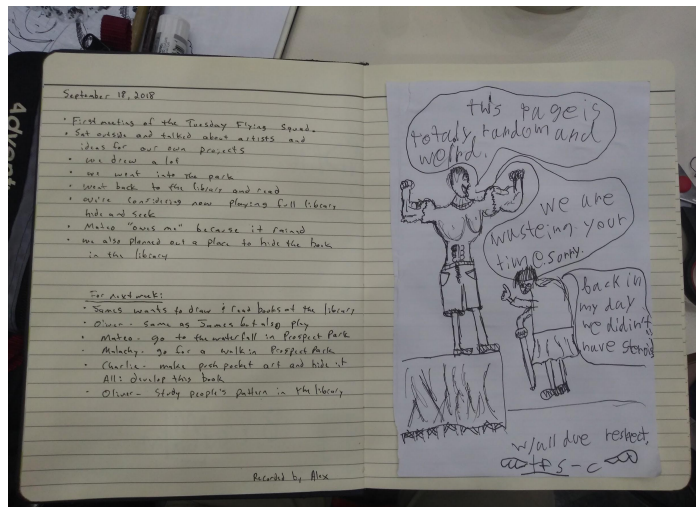 Advent
September 18, 2018
• First meeting of the Tuesday Flying Squad.
• Sat outside and talked about artists and
ideas for our own projects
• we drew a lot
• we went into the park
• went back to the library and read
• We're considering now playing full library
hide and seek
• Mateo "owes me" because it rained
• we also planned out a place to hide the book
in the library
For next week:
• James wants to draw & read books at the library
• Oliver - same as James but also play
• Mateo - go to the waterfall in Prospect Park
• Malachy - go for a walk in Prospect Park
• Charlie - make posh pocket art and hide it
All: develop this book
• Oliver - Study people's pattern in the library
Recorded by Alex
this page is
totaly random and
weird.
we are
wasteing your
time. sorry.
back in
my day
we didin't
have
w/all due respect,